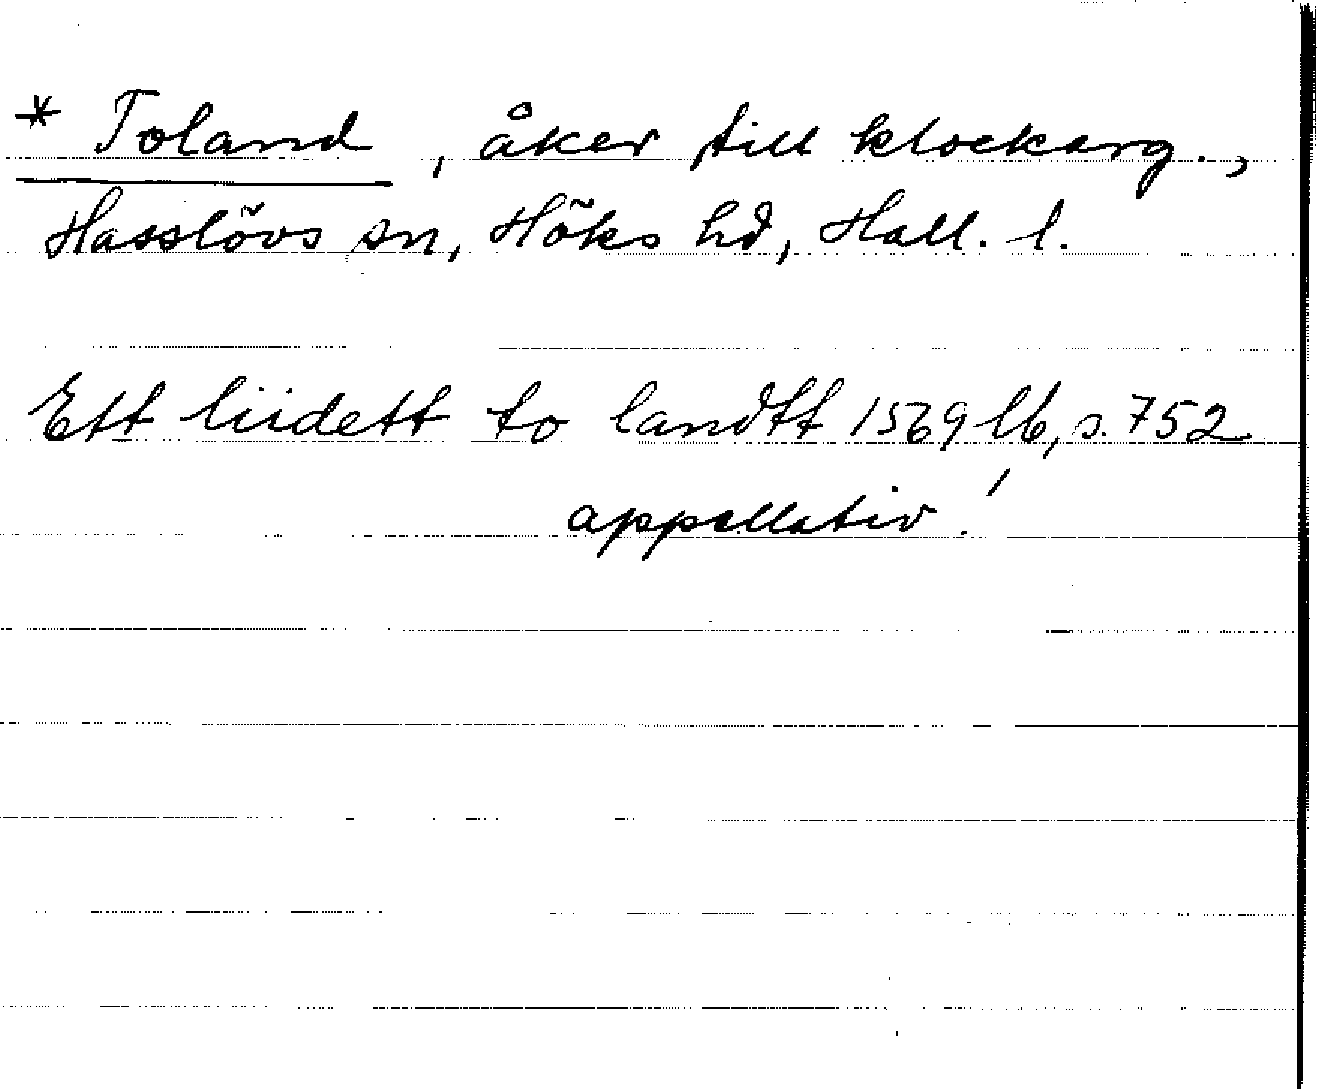 * Toland, åker till klockarg.,
Hasslövs sn, Höks hd, Hall. l.
Ett liidett to landtt 1569 lb, s. 752
appellativ!